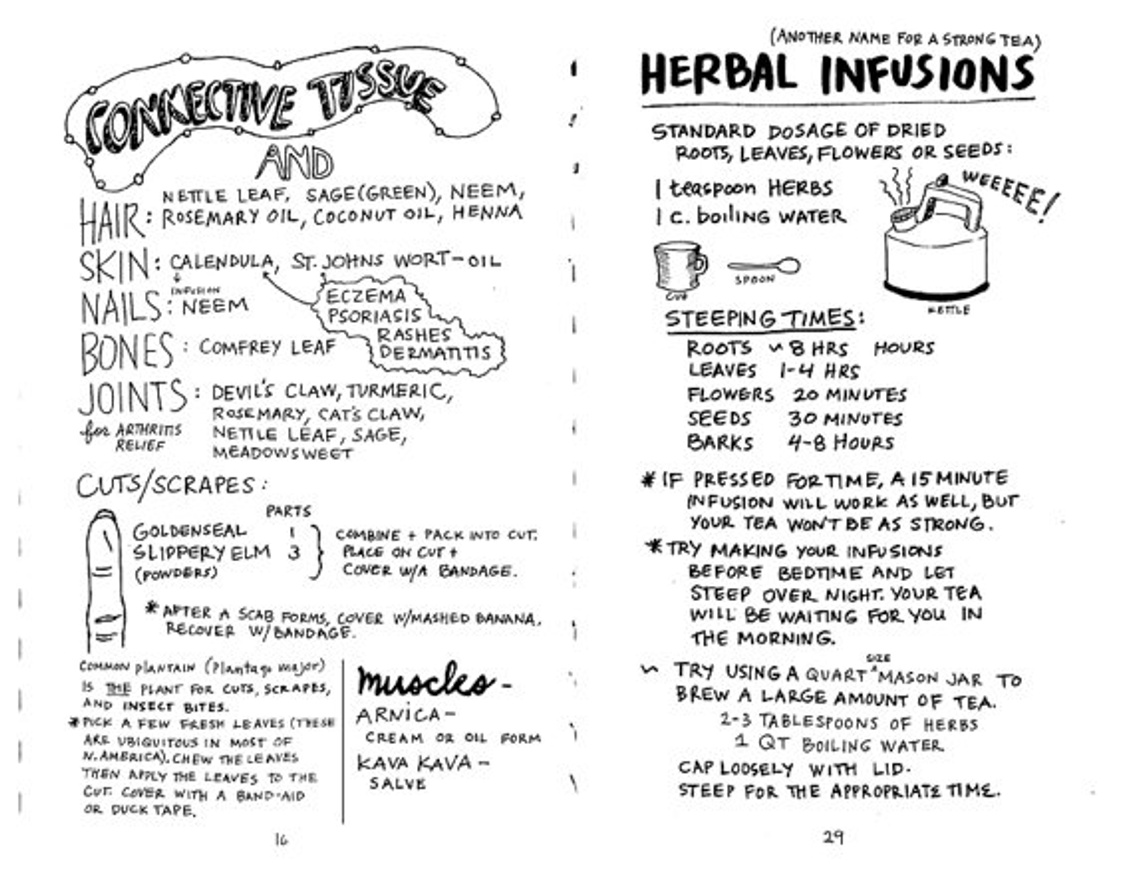 CONNECTIVE TISSUE
AND
HAIR: NETTLE LEAF, SAGE (GREEN), NEEM,
ROSEMARY OIL, COCONUT OIL, HENNA
SKIN: CALENDULA, ST. JOHNS WORT-OIL
INFUSION
NAILS: NEEM
ECZEMA
PSORIASIS
RASHES
DERMATITIS
BONES: COMFREY LEAF
JOINTS: DEVIL'S CLAW, TURMERIC,
for ARTHRITIS
RELIEF
ROSEMARY, CAT'S CLAW,
NETTLE LEAF, SAGE,
MEADOWSWEET
CUTS/SCRAPES:
PARTS
GOLDENSEAL 1
SLIPPERY ELM 3
(POWDERS)
COMBINE + PACK INTO CUT.
PLACE ON CUT +
COVER W/A BANDAGE.
* AFTER A SCAB FORMS, COVER W/MASHED BANANA.
RECOVER W/BANDAGE.
COMMON PLANTAIN (Plantago major)
IS THE PLANT FOR CUTS, SCRAPES,
AND INSECT BITES.
* PICK A FEW FRESH LEAVES (THESE
ARE UBIQUITOUS IN MOST OF
N. AMERICA). CHEW THE LEAVES
THEN APPLY THE LEAVES TO THE
CUT. COVER WITH A BAND-AID
OR DUCK TAPE.
muscles-
ARNICA-
CREAM OR OIL FORM
KAVA KAVA-
SALVE
16
(ANOTHER NAME FOR A STRONG TEA)
HERBAL INFUSIONS
STANDARD DOSAGE OF DRIED
ROOTS, LEAVES, FLOWERS OR SEEDS:
1 teaspoon HERBS
1 c. boiling WATER
WEEEEE!
CUP
SPOON
KETTLE
STEEPING TIMES:
ROOTS ~ 8 HRS HOURS
LEAVES 1-4 HRS
FLOWERS 20 MINUTES
SEEDS 30 MINUTES
BARKS 4-8 HOURS
* IF PRESSED FOR TIME, A 15 MINUTE
INFUSION WILL WORK AS WELL, BUT
YOUR TEA WON'T BE AS STRONG.
* TRY MAKING YOUR INFUSIONS
BEFORE BEDTIME AND LET
STEEP OVER NIGHT. YOUR TEA
WILL BE WAITING FOR YOU IN
THE MORNING.
~ TRY USING A QUART SIZE MASON JAR TO
BREW A LARGE AMOUNT OF TEA.
2-3 TABLESPOONS OF HERBS
1 QT BOILING WATER
CAP LOOSELY WITH LID.
STEEP FOR THE APPROPRIATE TIME.
29